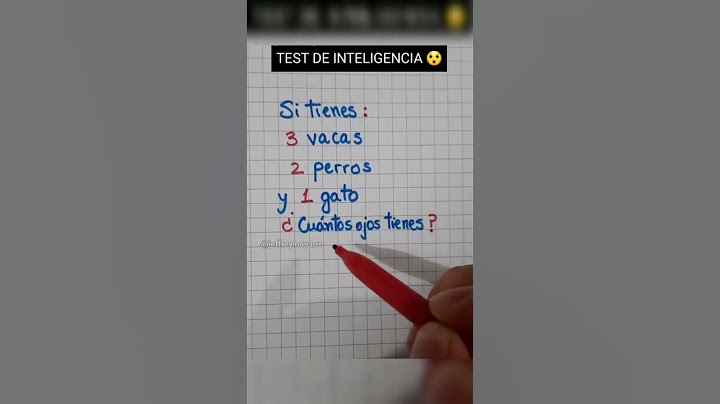 TEST DE INTELIGENCIA 😯
Si tienes:
3 vacas
2 perros
y 1 gato
¿Cuántos ojos tienes?